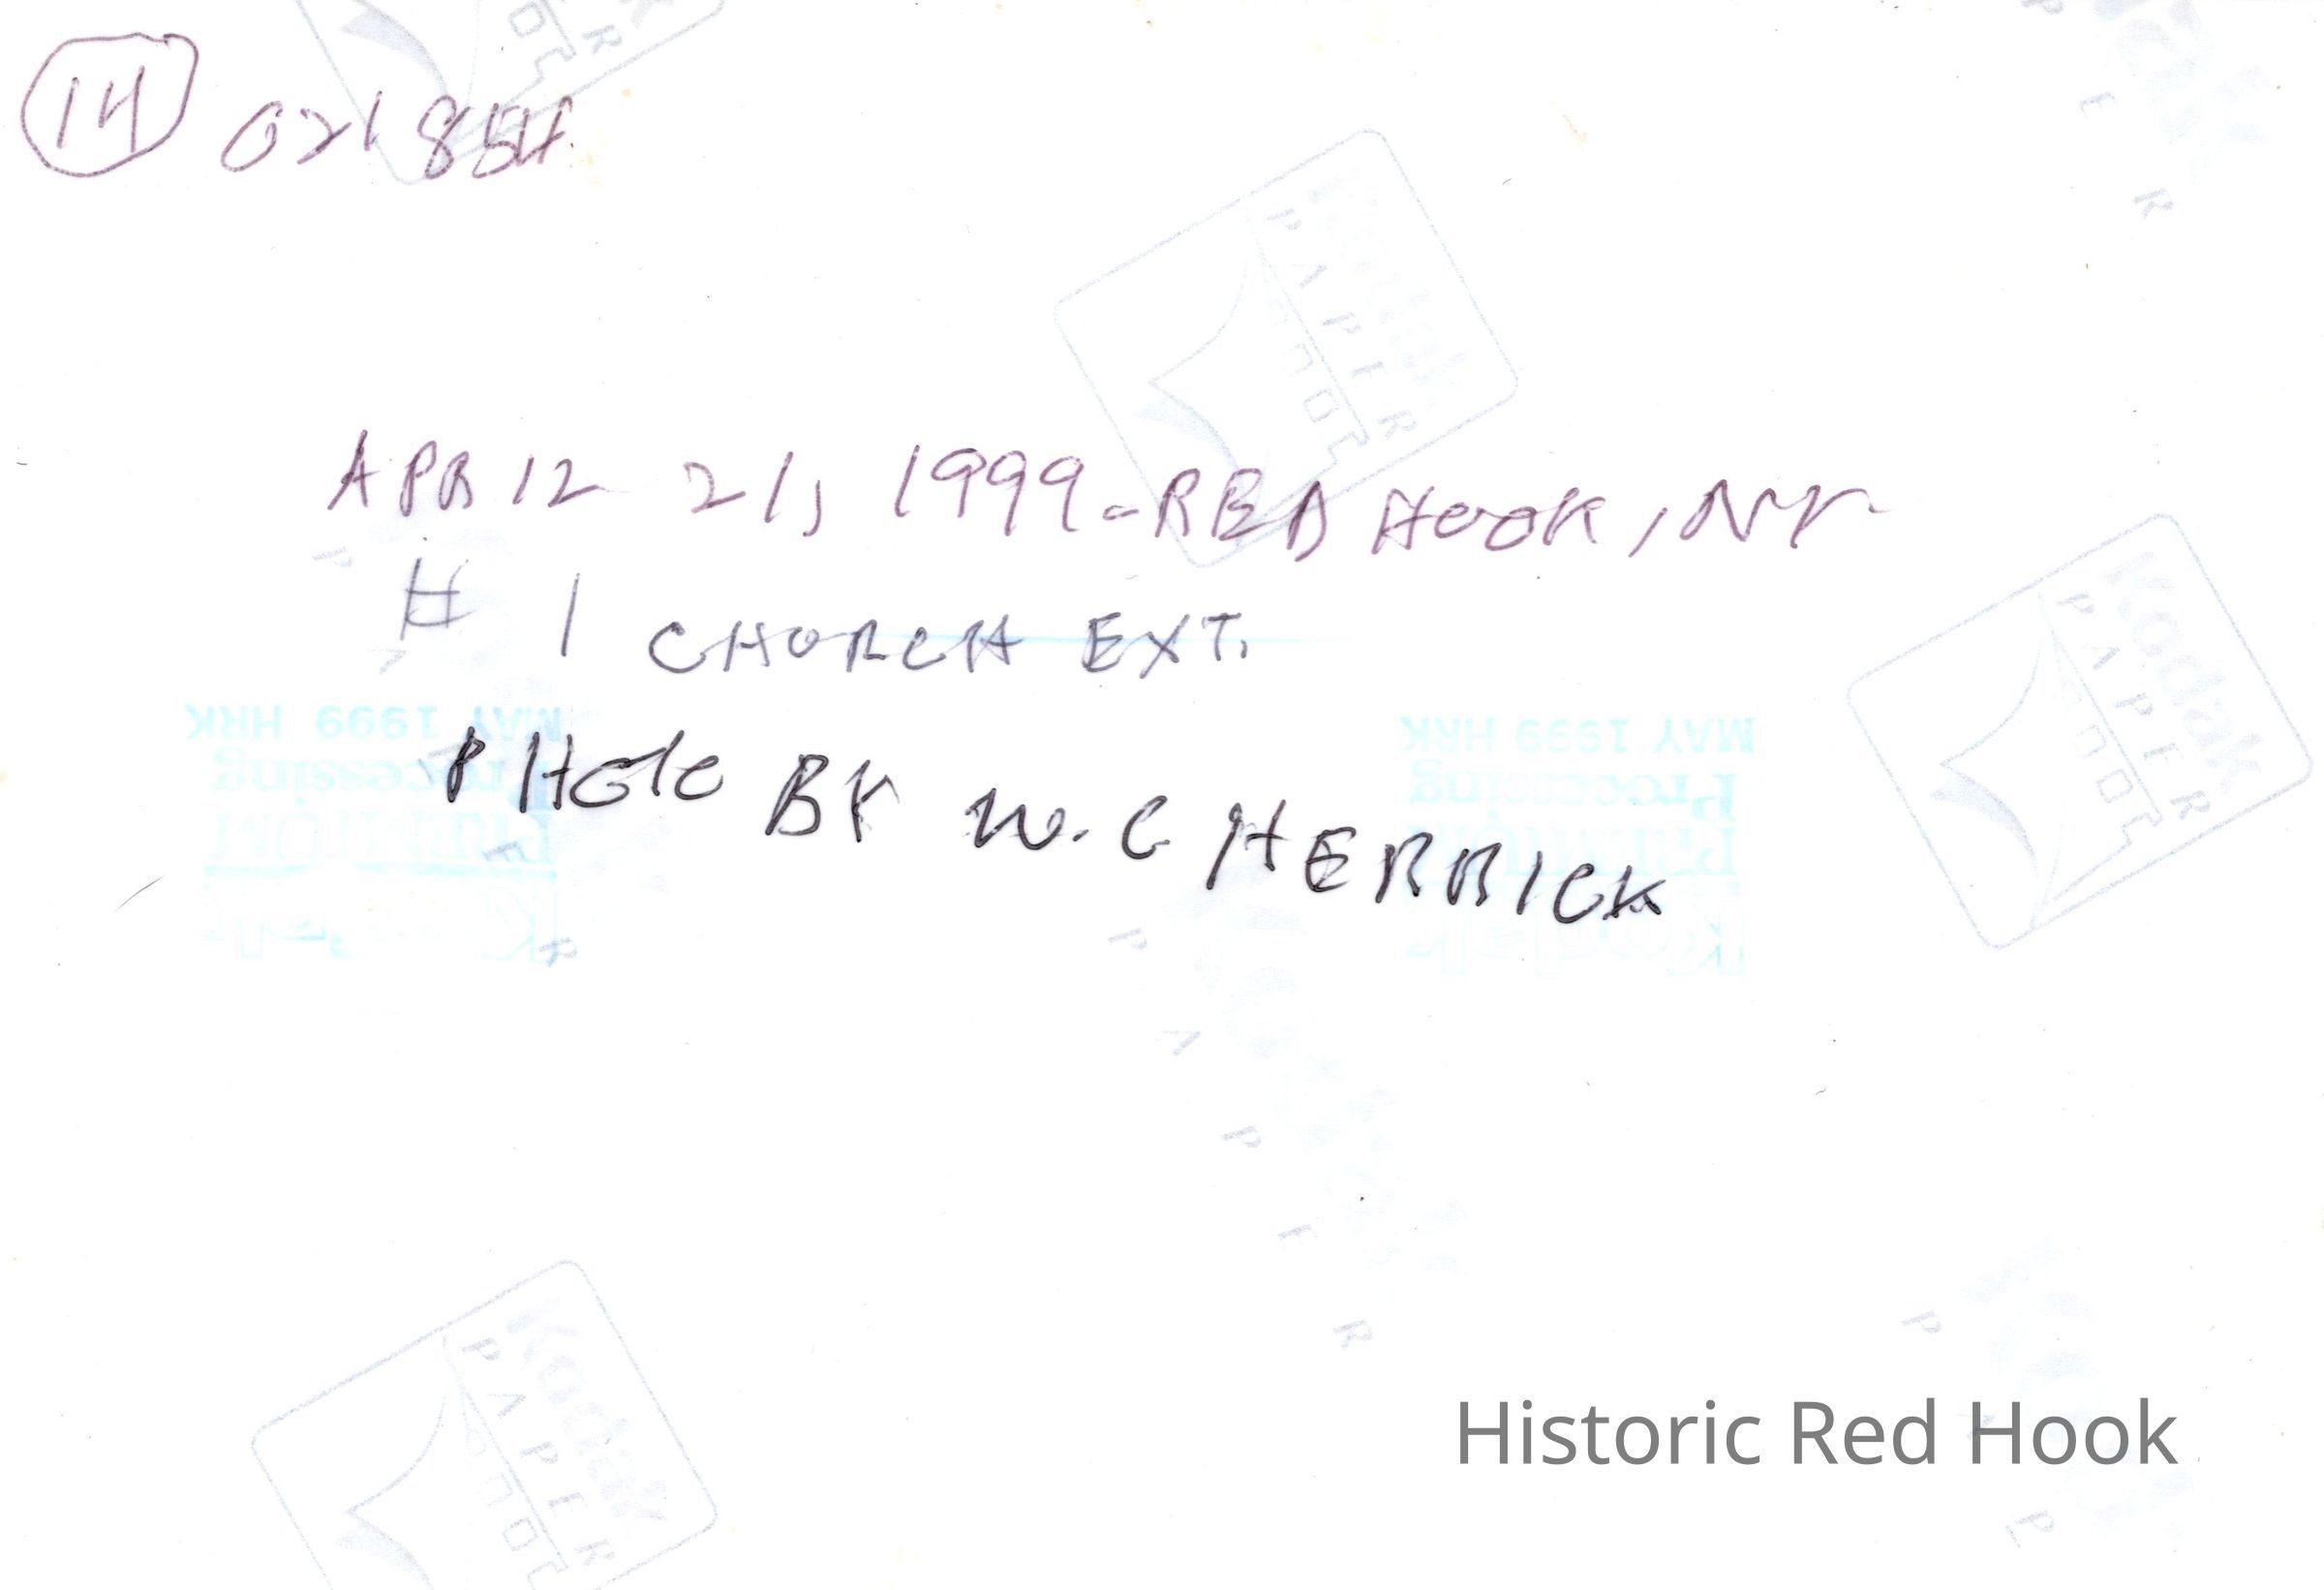 14 021854
APRIL 21, 1999 - RED HOOK, NY
# 1 CHURCH EXT.
PHOTO BY W. C HERRICK
MAY 1999 HRK
Processing
PREMIUM
Kodak
MAY 1999 HRK
Processing
PREMIUM
Kodak
Kodak
PAPER
Kodak
PAPER
Kodak
PAPER
Historic Red Hook